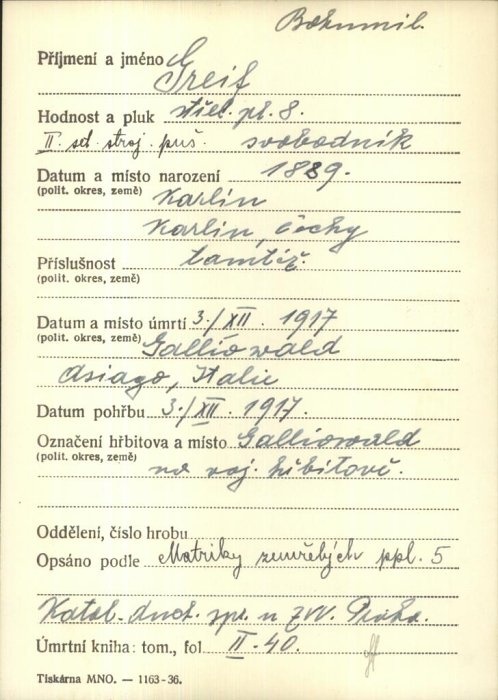 Bohumil
Příjmení a jméno Greif
Hodnost a pluk střel. pl. 8.
II. sd. stroj. puš. svobodník
Datum a místo narození 1889.
(polit. okres, země) Karlín
Karlín, Čechy
Příslušnost tamtéž.
(polit. okres, země)
Datum a místo úmrtí 3./XII. 1917
(polit. okres, země) Galliowald
Asiago, Italie
Datum pohřbu 3./XII. 1917.
Označení hřbitova a místo Galliowald
(polit. okres, země)
na voj. hřbitově.
Oddělení, číslo hrobu
Opsáno podle Matriky zemřelých ppl. 5
Katol. duch. spr. u ZVV. Praha.
Úmrtní kniha: tom., fol II - 40.
Tiskárna MNO. — 1163-36.